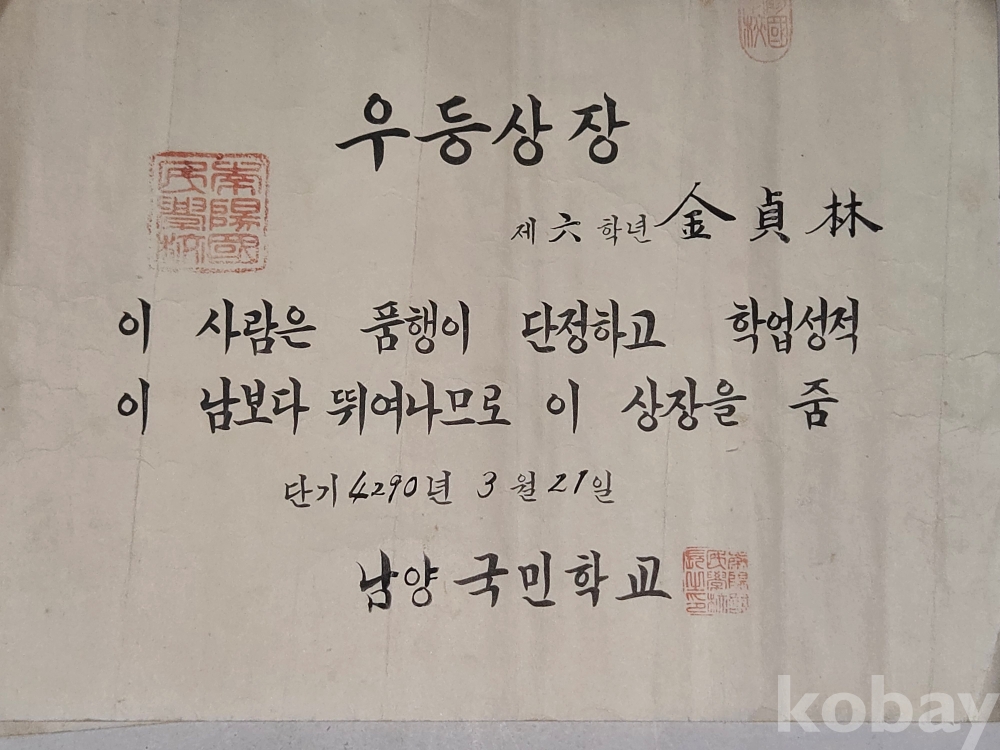 國
校
우등상장
南陽國
民學校
제六학년 金貞林
이 사람은 품행이 단정하고 학업성적
이 남보다 뛰여나므로 이 상장을 줌
단기 4290년 3월 21일
남양국민학교
南陽國
民學校
長之印
kobay